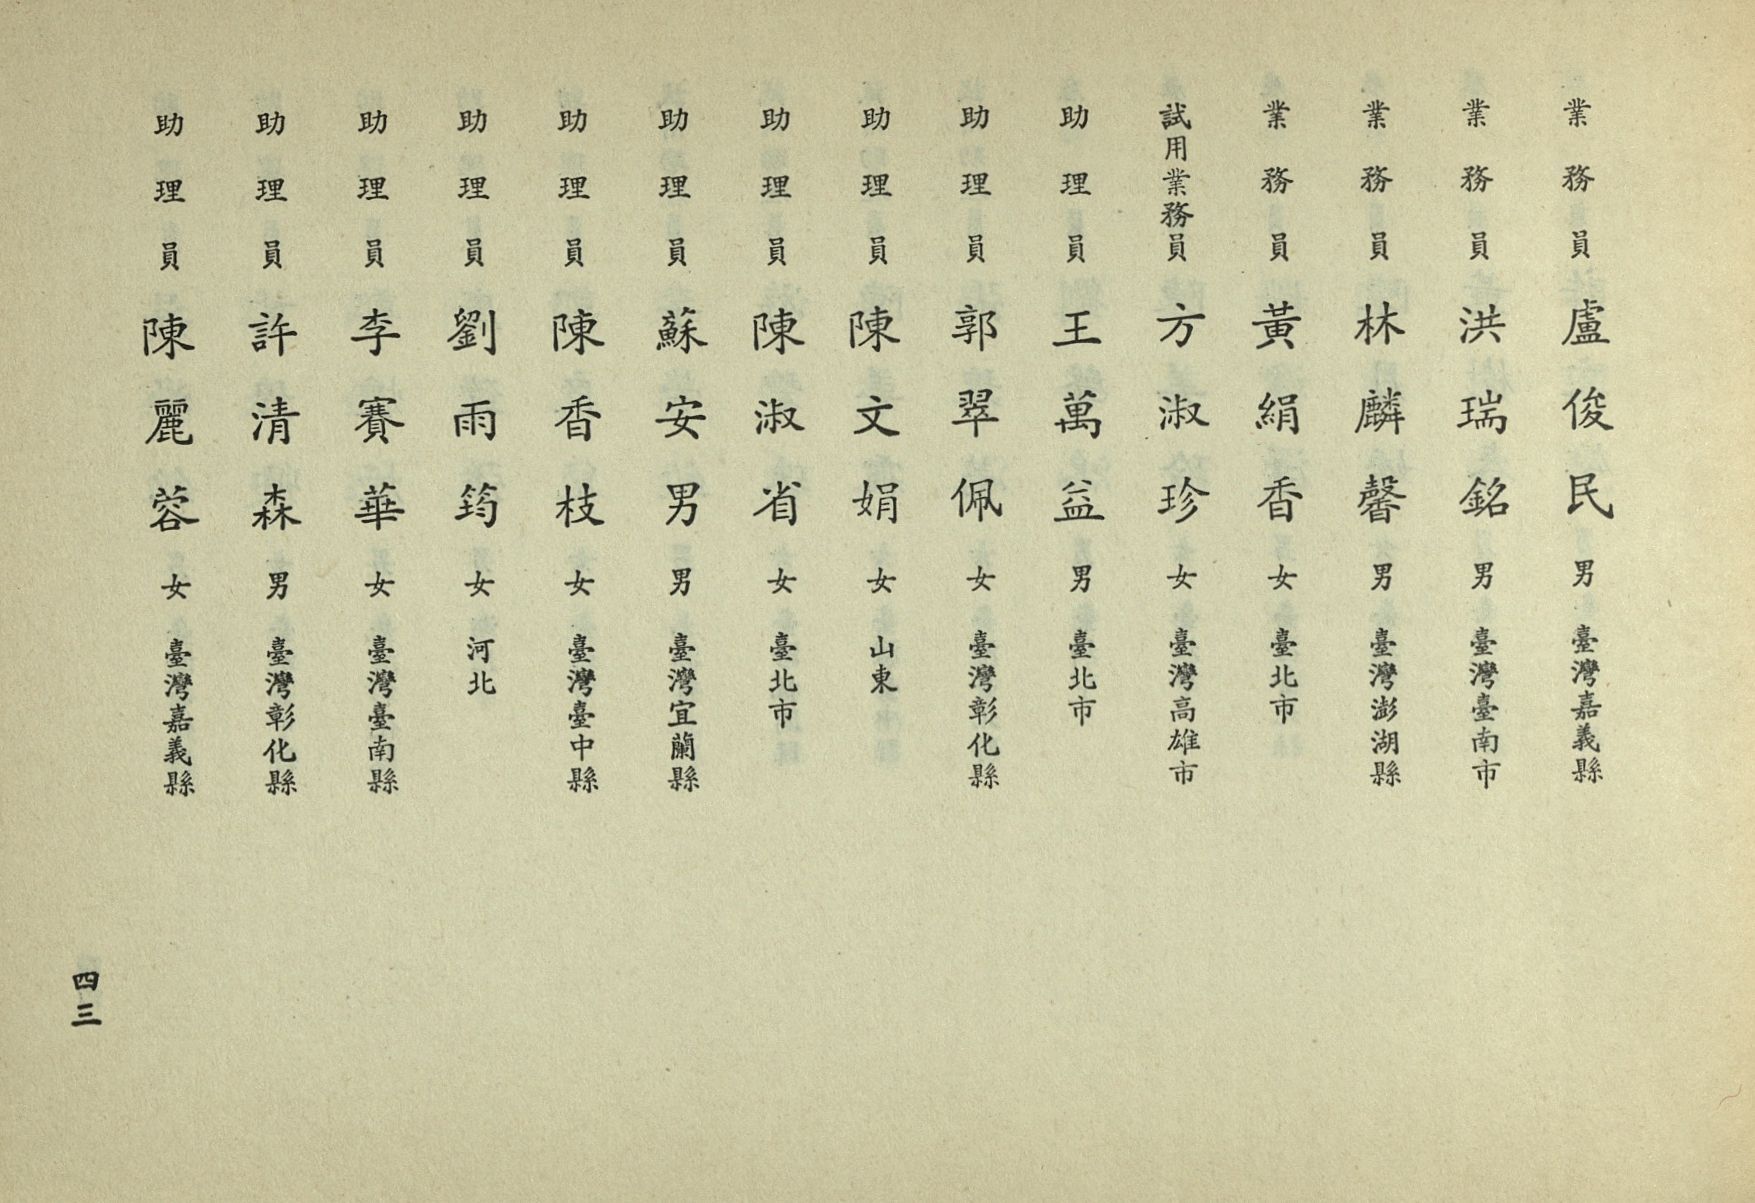 業務員 盧俊民 男 臺灣嘉義縣
業務員 洪瑞銘 男 臺灣臺南市
業務員 林麟馨 男 臺灣澎湖縣
業務員 黃絹香 女 臺北市
試用業務員 方淑珍 女 臺灣高雄市
助理員 王萬益 男 臺北市
助理員 郭翠佩 女 臺灣彰化縣
助理員 陳文娟 女 山東
助理員 陳淑省 女 臺北市
助理員 蘇安男 男 臺灣宜蘭縣
助理員 陳香枝 女 臺灣臺中縣
助理員 劉雨筠 女 河北
助理員 李賽華 女 臺灣臺南縣
助理員 許清森 男 臺灣彰化縣
助理員 陳麗蓉 女 臺灣嘉義縣
四三